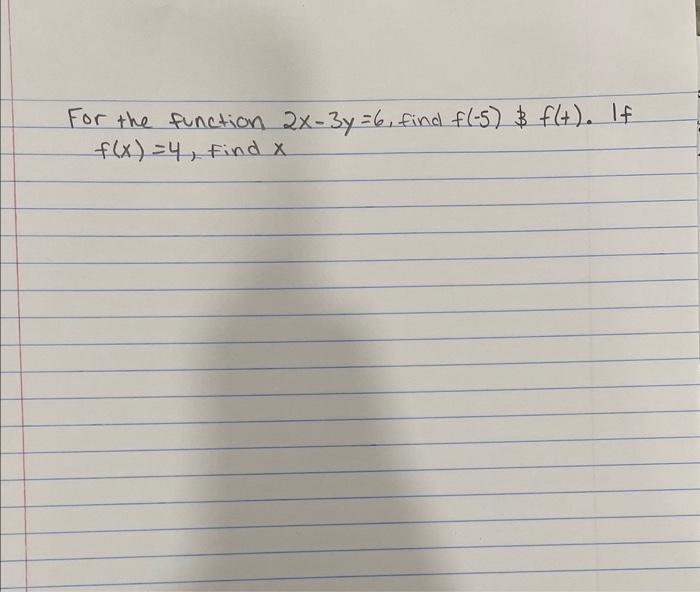 For the function 2x-3y=6, find f(-5) & f(t). If
f(x)=4, find x